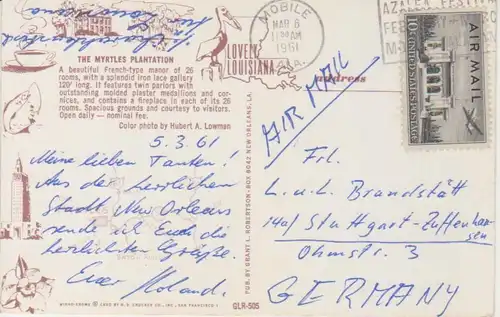 THE MYRTLES PLANTATION
A beautiful French-type manor of 26
rooms, with a splendid iron lace gallery
120' long. It features twin parlors with
outstanding molded plaster medallions and cor-
nices, and contains a fireplace in each of its 26
rooms. Spacious grounds and courtesy to visitors.
Open daily — nominal fee.
Color photo by Hubert A. Lowman
5.3.61
Meine lieben Tanten!
Aus der herrlichen
Stadt New Orleans
sende ich Euch die
herzlichsten Grüße.
Euer Roland.
LOVELY
LOUISIANA
MOBILE
MAR 6
1961
ALA.
AZALEA
address
AIR MAIL
AIR MAIL
10¢ UNITED STATES POSTAGE
Frl.
L. u. L. Brandstätt
14a/ Stuttgart-Zuffenhau-
sen
Ohmstr. 3
GERMANY
PUB. BY GRANT L. ROBERTSON - BOX 8042 NEW ORLEANS, LA.
GLR-505